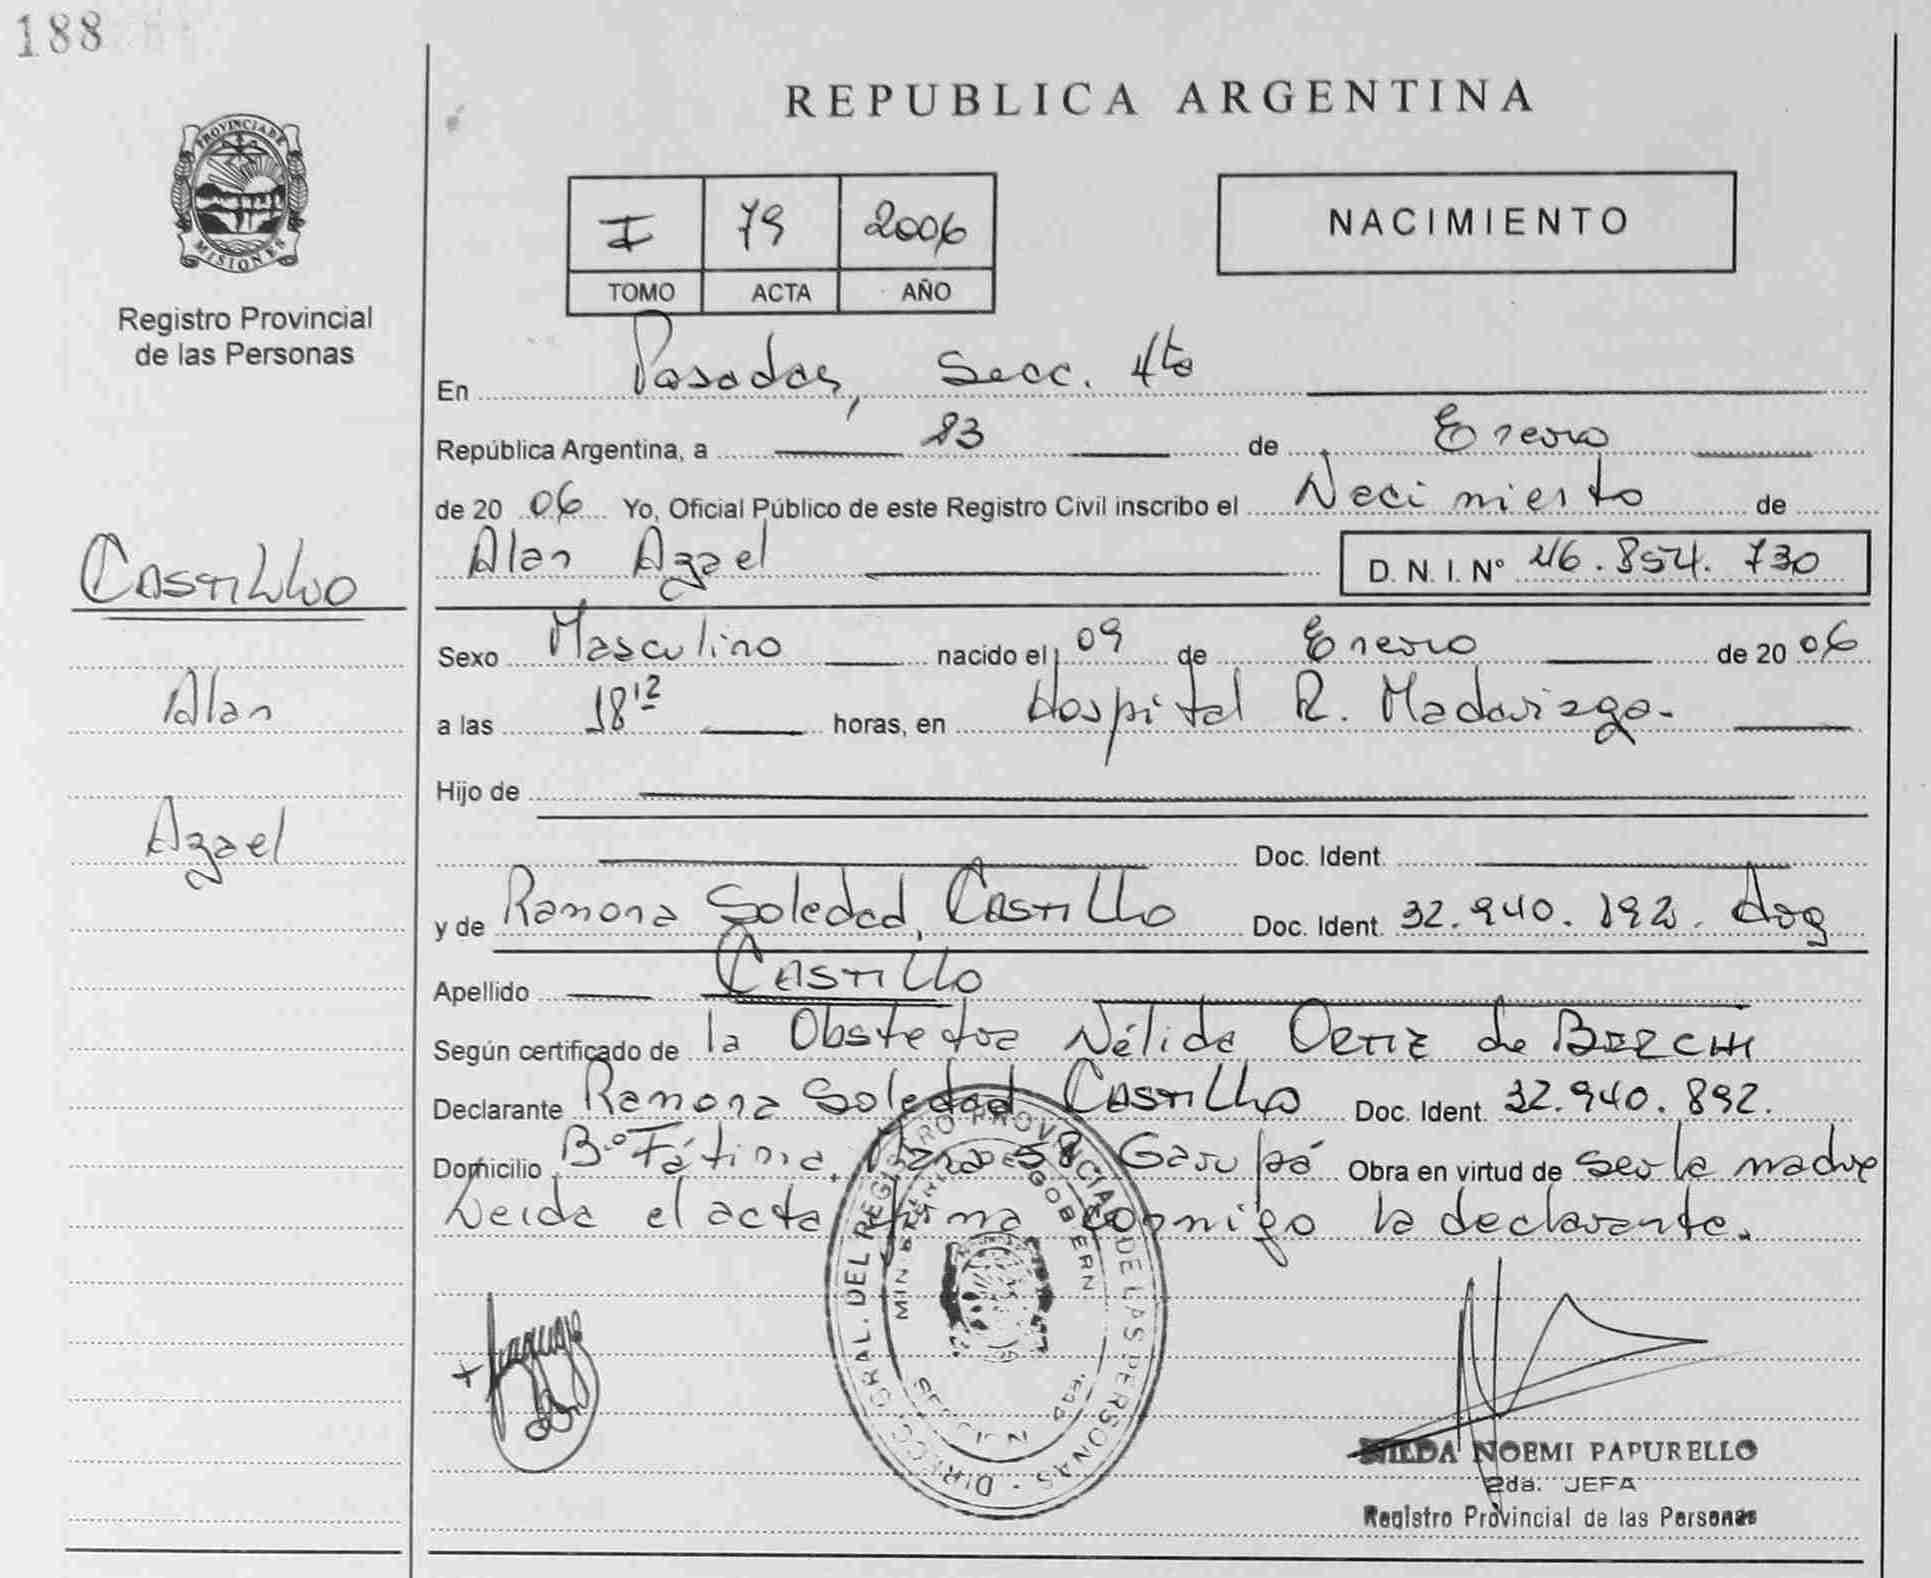 188
REPUBLICA ARGENTINA
PROVINCIA DE
MISIONES
Registro Provincial
de las Personas
I 79 2006
TOMO ACTA AÑO
NACIMIENTO
En Posadas, Secc. 4ta
República Argentina, a 23 de Enero
de 20 06 Yo, Oficial Público de este Registro Civil inscribo el Nacimiento de
Alan Azael D. N. I. N° 46.854.730
CASTILLO
Alan
Azael
Sexo Masculino nacido el 09 de Enero de 20 06
a las 18 12 horas, en Hospital R. Madariaga.
Hijo de
Doc. Ident
y de Ramona Soledad, CASTILLO Doc. Ident 32.940.892. Arg
Apellido CASTILLO
Según certificado de la Obstetra Nélida ORTIZ de
Declarante Ramona Soledad CASTILLO Doc. Ident. 32.940.892.
Domicilio B° Fátima, 58 Garupá Obra en virtud de ser la madre
Leida el acta firma conmigo la declarante.
DIRECC. GRAL. DEL REGISTRO PROVINCIAL DE LAS PERSONAS
NOEMI PAPURELLO
2da. JEFA
Registro Provincial de las Personas